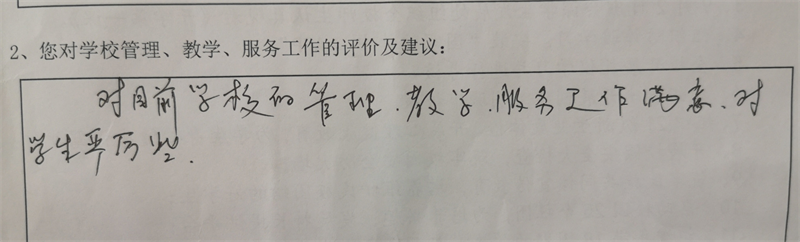 2、您对学校管理、教学、服务工作的评价及建议：
对目前学校的管理、教学、服务工作满意、对
学生严厉些.